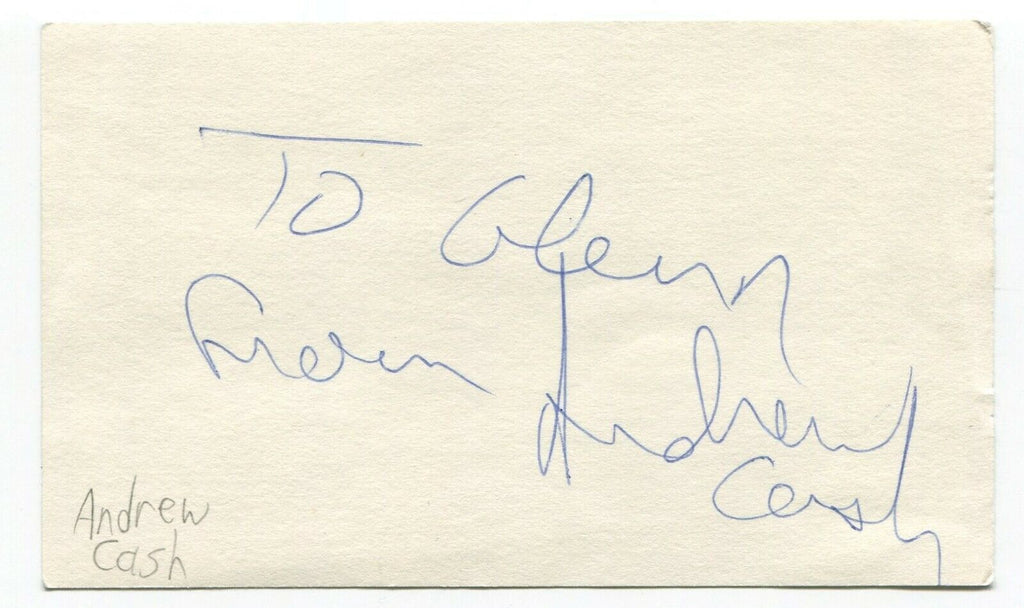 To Glenn
From Andrew
Cash
Andrew
Cash